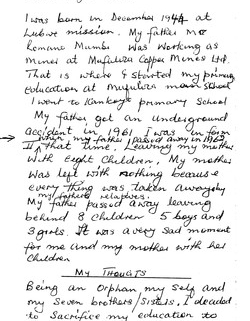 I was born in December 194A at
Lubwe mission. My father Mr
Romano Mumba was working as
Miner at Mufulira Copper Mines Ltd.
That is where I started my primary
Education at Mufulira main school
I went to Kankoyo primary School
My father got an underground
accident in 1961 I was in form
when my father passed away in 1962
II that time. Leaving my mother
with Eight Children. My mother
was left with nothing because
every thing was taken away by
my father's relatives.
My father passed away leaving
behind 8 children 5 boys and
3 girls. It was a very sad moment
for me and my mother with her
Children
My Thougts
Being an Orphan, my self and
my Seven brothers/Sisters, I decided
to Sacrifice my education to